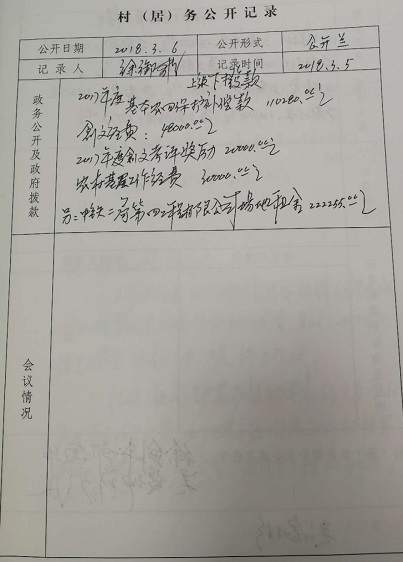 村（居）务公开记录
公开日期 2018.3.6 公开形式 公开兰
记录人 徐 记录时间 2018.3.5
政务公开及政府拨款
上级下拨款
2017年度
基本农田保护补偿款 110280.00元
创文经费：48000.00元
2017年度创文考评奖励 20000.00元
农村基层工作经费 30000.00元
另：中铁二局第四工程有限公司场地租金 222255.00元
会议情况